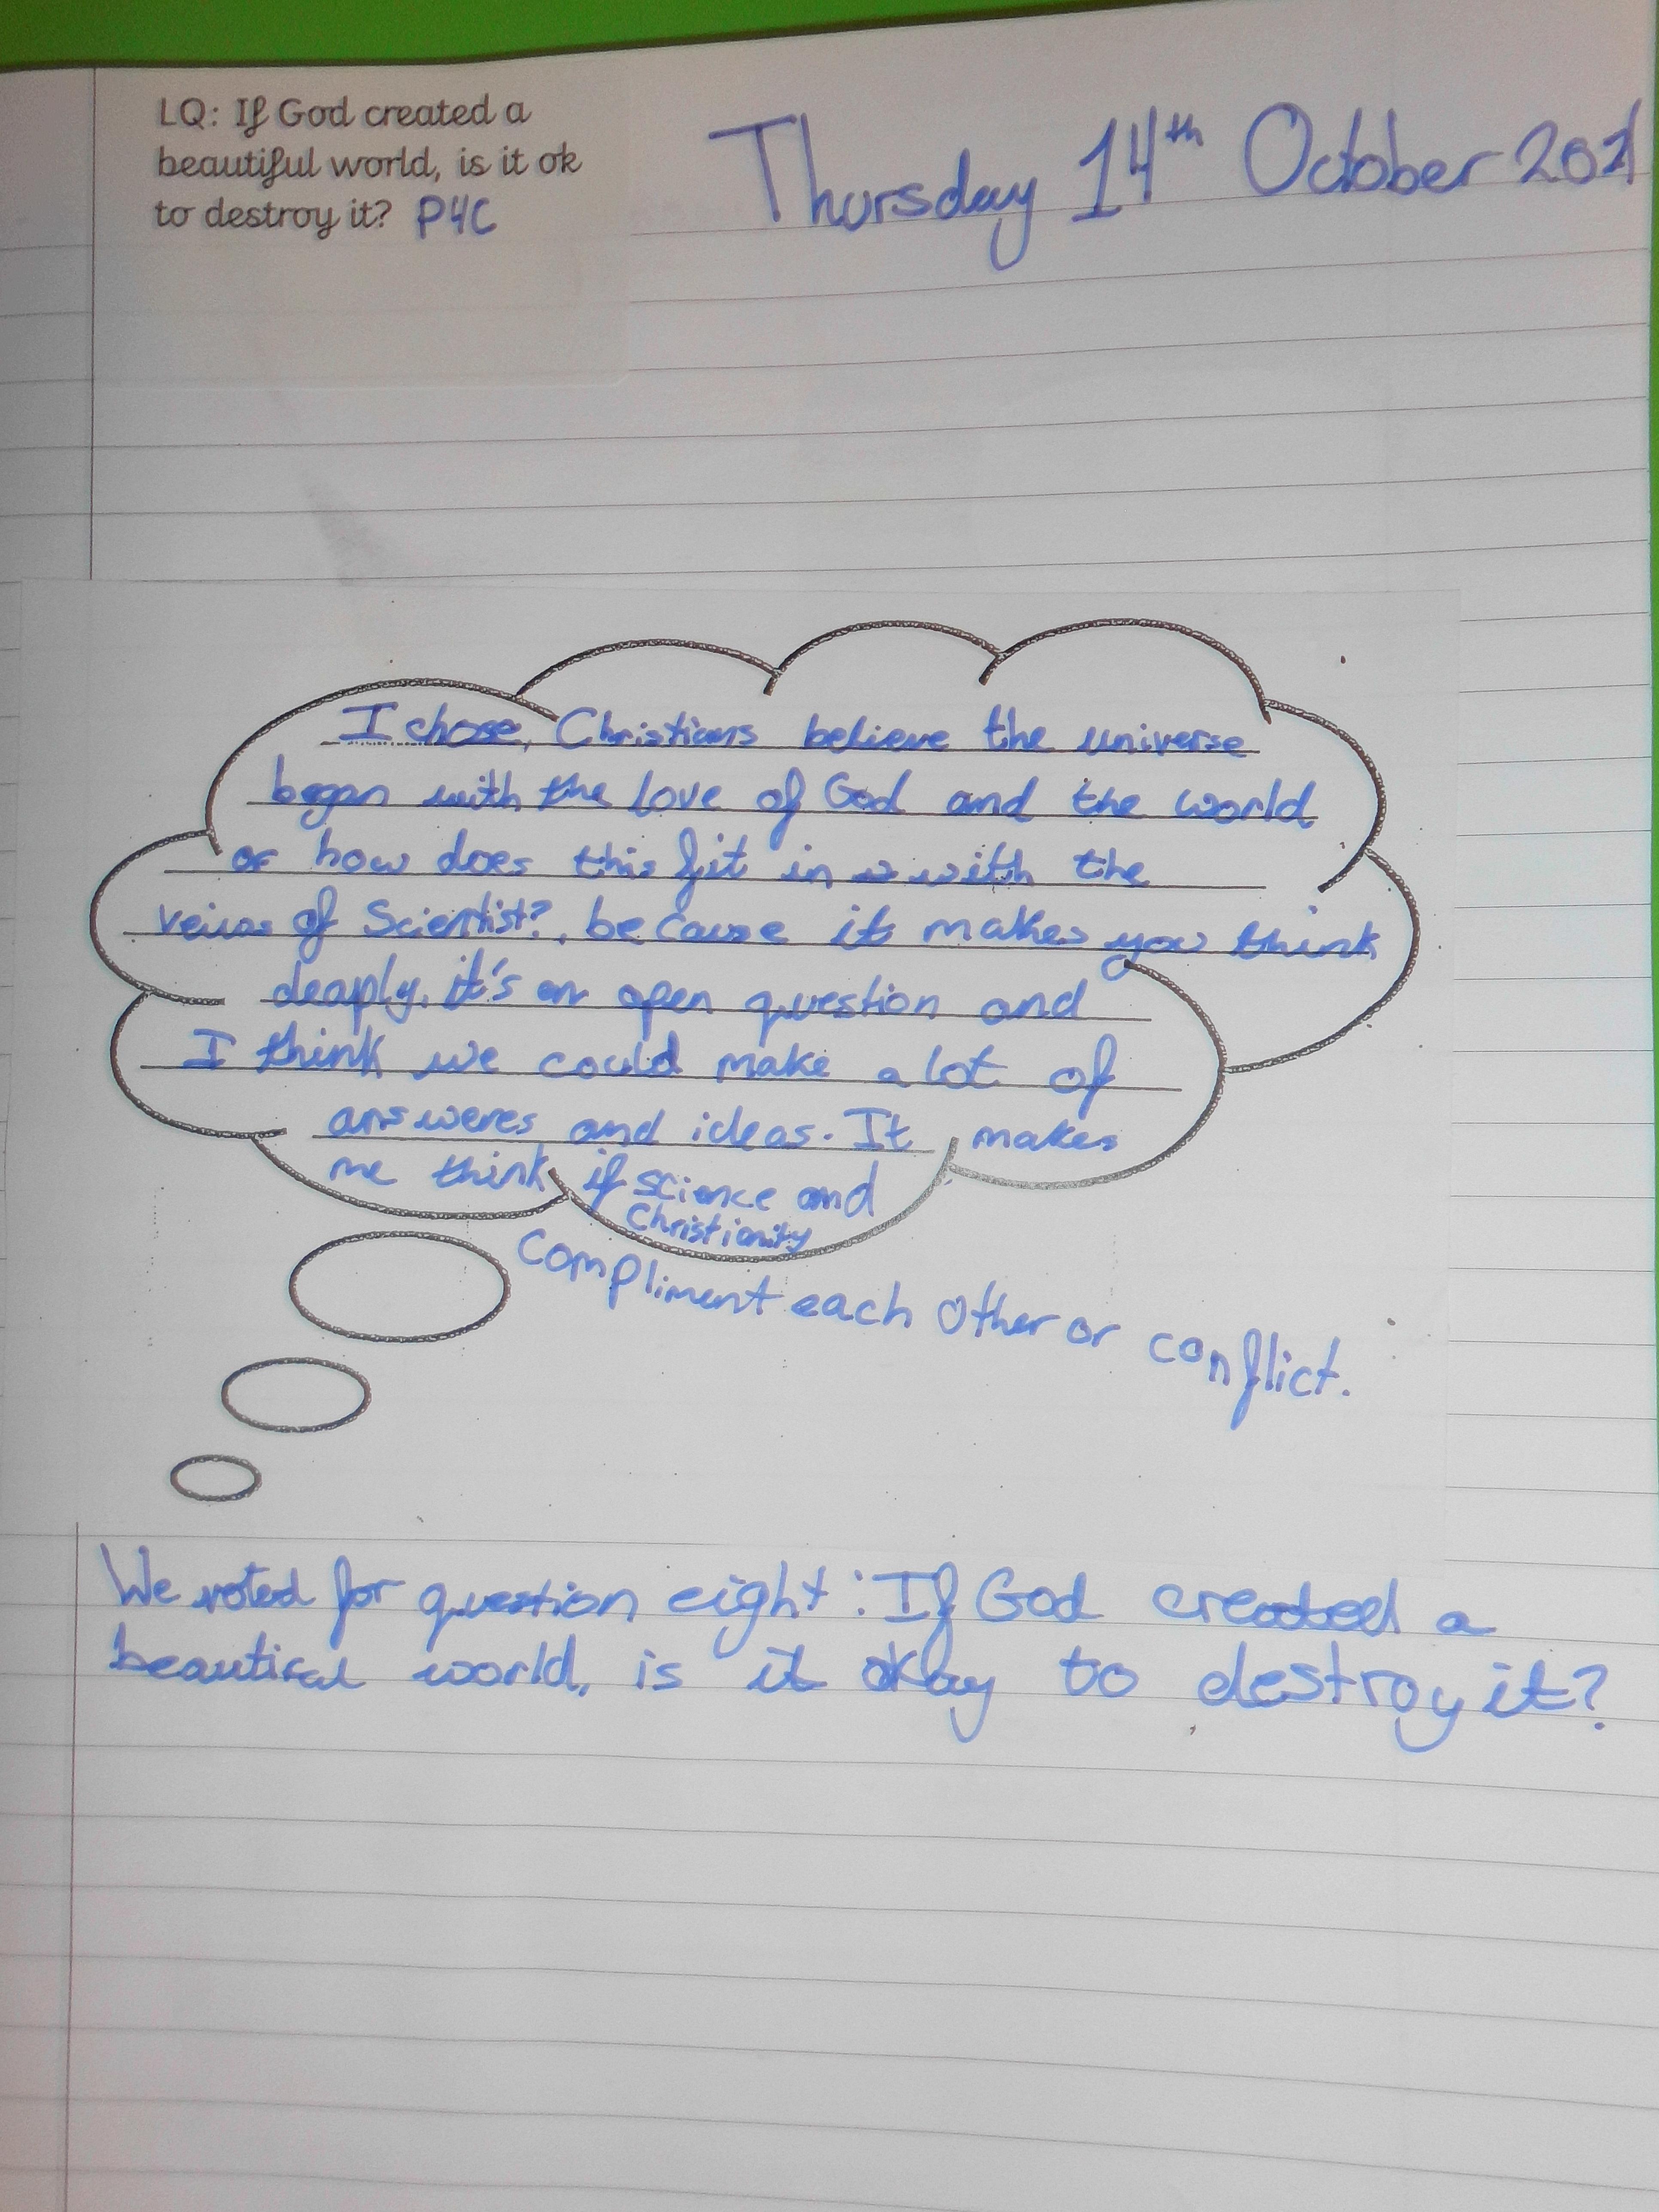 LQ: If God created a
beautiful world, is it ok
to destroy it? P4C
Thursday 14th October 2021
I chose, Christians believe the universe
began with the love of God and the world
or how does this fit in with the
veiws of Scientist?, because it makes you think
deaply, it's an open question and
I think we could make a lot of
answeres and ideas. It makes
me think if science and
Christianity
compliment each other or conflict.
We voted for question eight: If God created a
beautiful world, is it okay to destroy it?